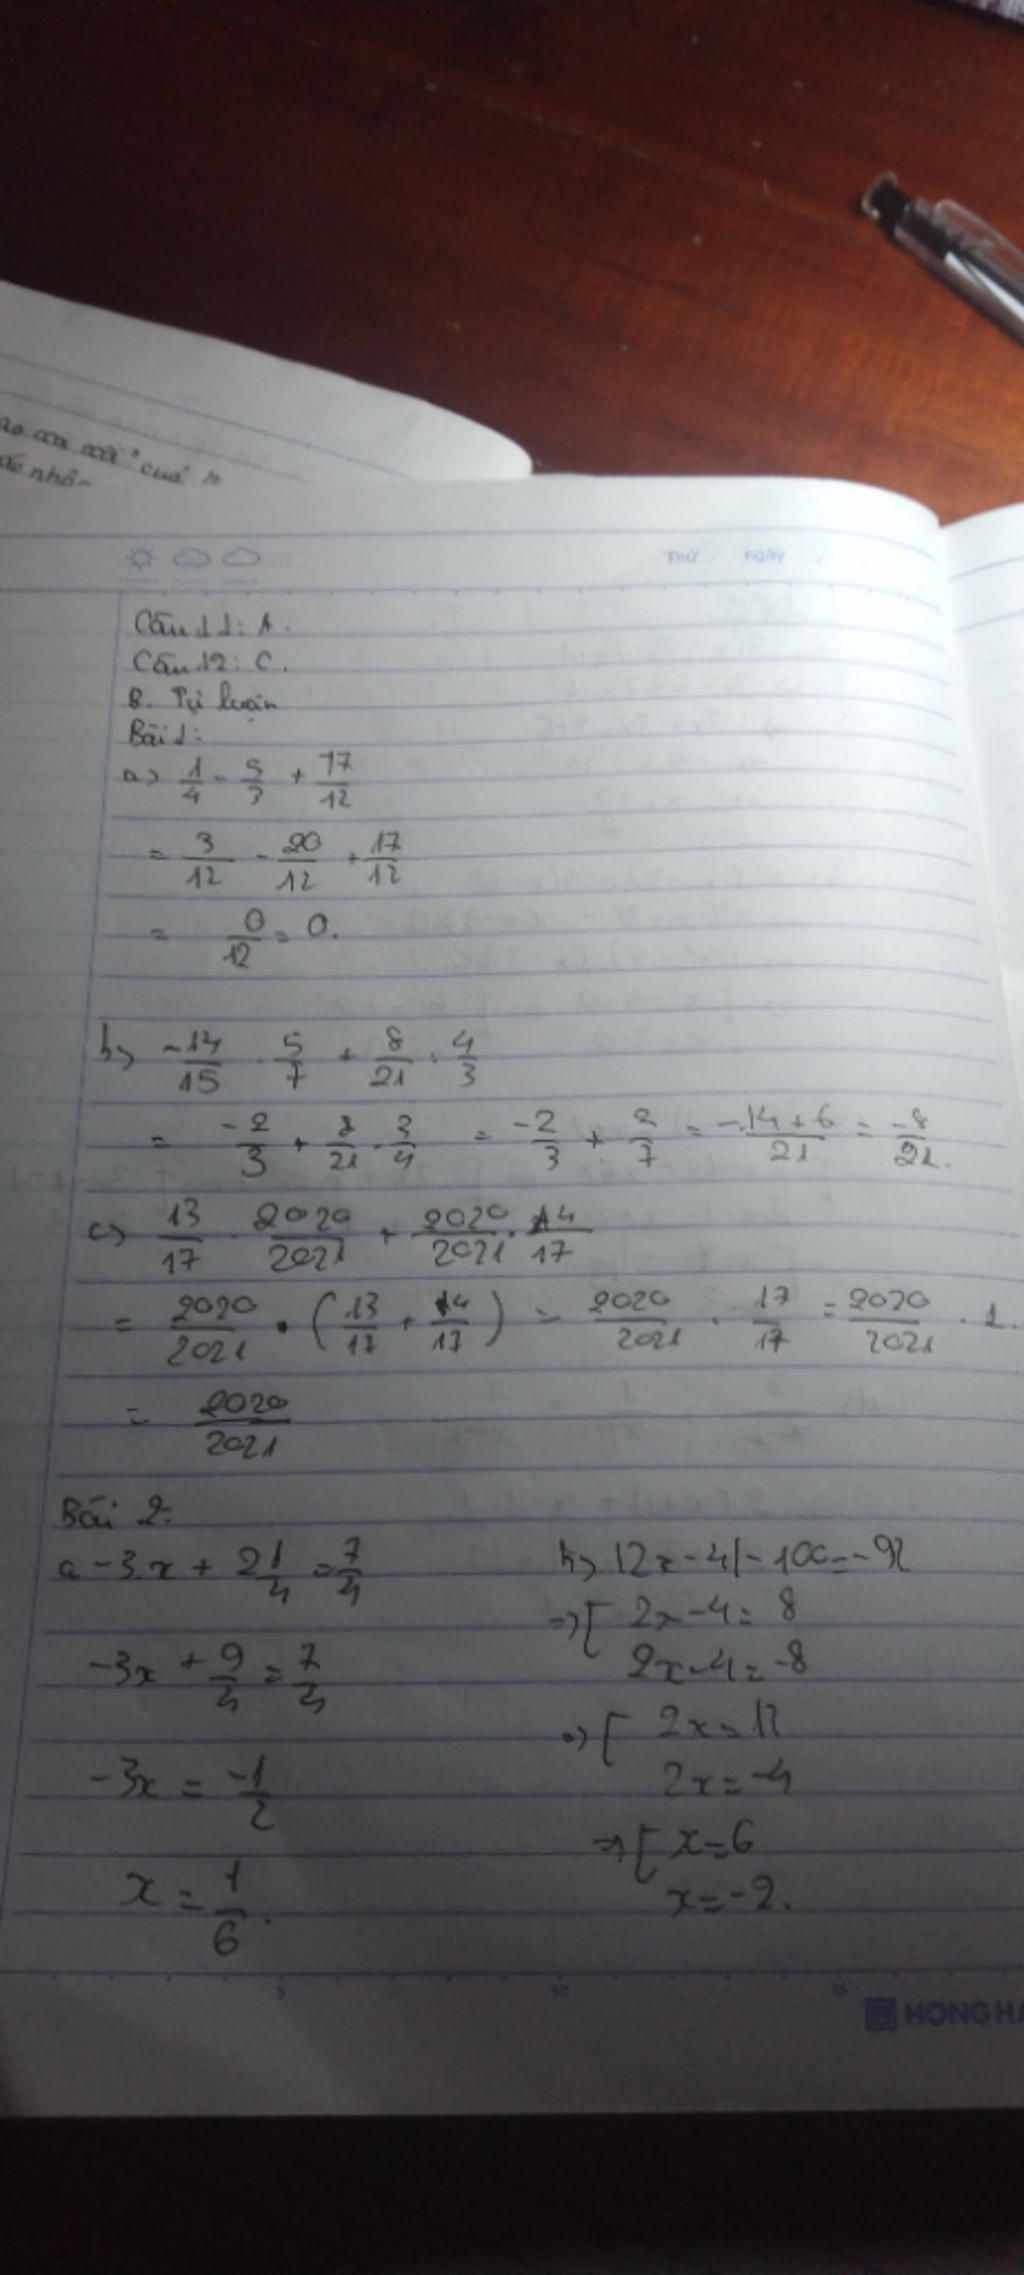 cuả
nhân
Thứ ngày
Câu 11: A.
Câu 12: C.
B. Tự luận
Bài 1:
a> 1/4 - 5/3 + 17/12
= 3/12 - 20/12 + 17/12
= 0/12 = 0.
b> -14/15 . 5/7 + 8/21 : 4/3
= -2/3 + 8/21 . 3/4 = -2/3 + 2/7 = -14+6/21 = -8/21.
c> 13/17 . 2020/2021 + 2020/2021 . 4/17
= 2020/2021 . (13/17 + 4/17) = 2020/2021 . 17/17 = 2020/2021 . 1.
= 2020/2021
Bài 2:
a -3.x + 2 1/4 = 7/4
-3x + 9/4 = 7/4
-3x = -1/2
x = 1/6.
b> |2x-4| - 100 = -92
=> [ 2x-4 = 8
2x-4 = -8
=> [ 2x = 12
2x = -4
=> [ x = 6
x = -2.
5 10 15
HONG HA